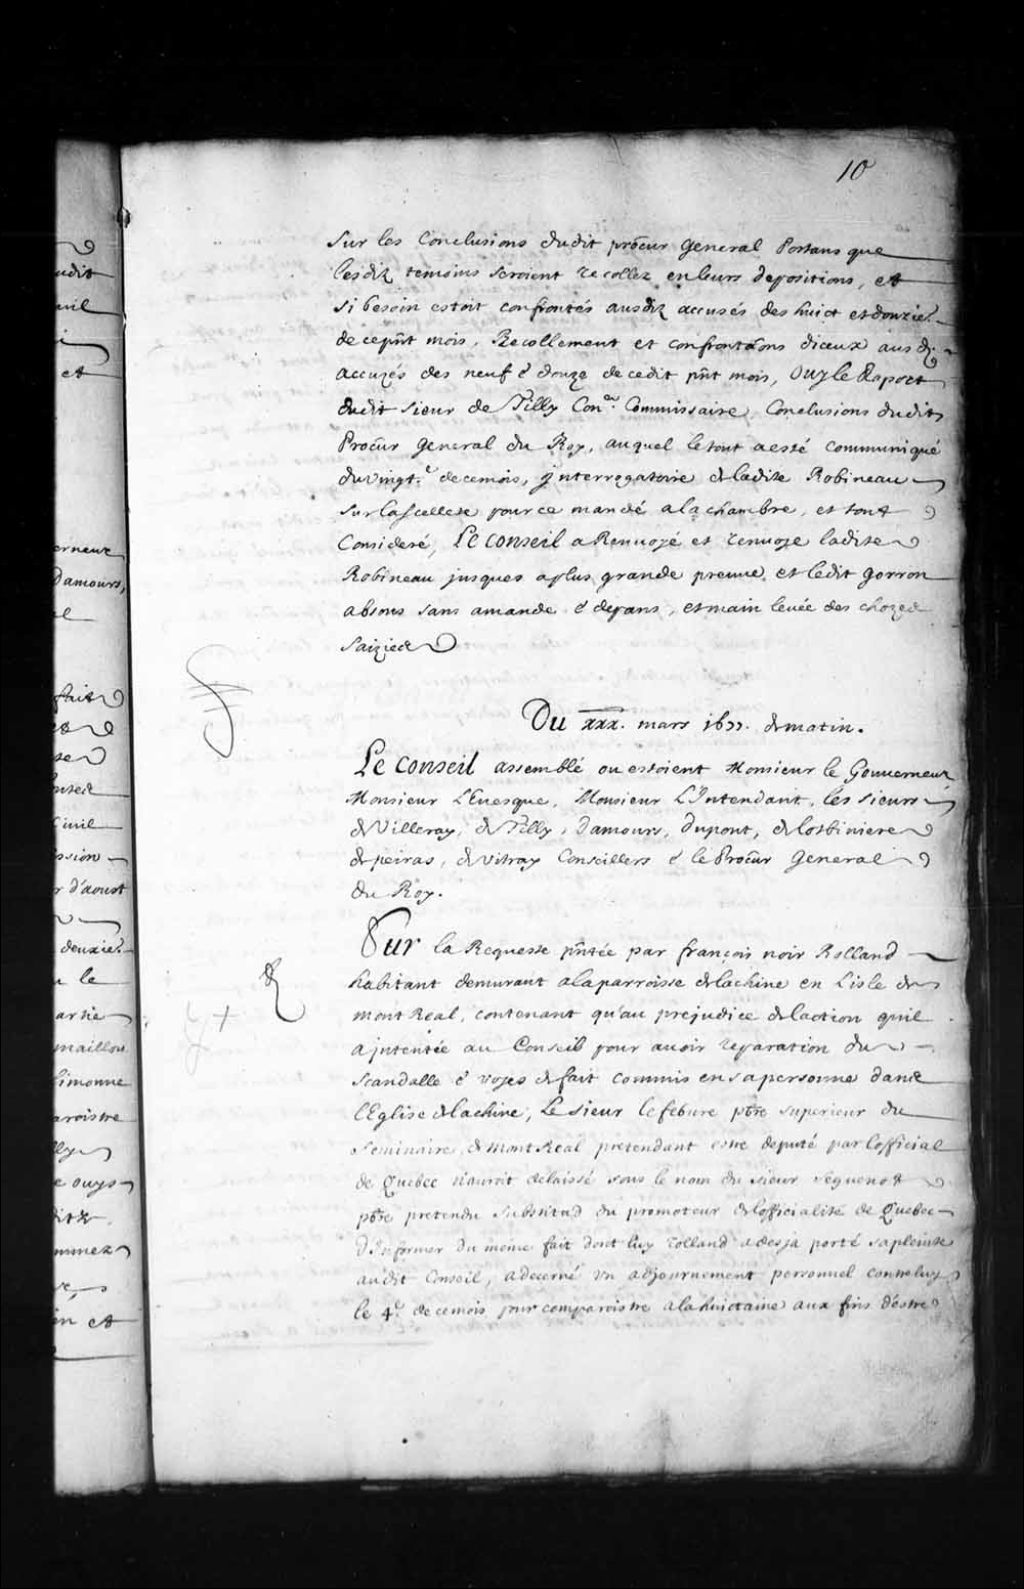 10
Sur les Conclusions dudit procur General Portans que
lesdiz temoins seroient recollez en leurs depositions, et
si besoin estoit confrontés ausdiz accusés des huict et douzie.
de cepnt mois, Recollement et confrontaons diceux ausd.
accuzés des neuf & douze de cedit pnt mois, Ouy le Raport
dudit sieur de Tilly Coner. Commissaire, Conclusions dudit
Procur General du Roy, auquel le tout a esté communiqué
du vingt.e de cemois, jnterrogatoire de ladite Robineau
sur la scellete pour ce mandé a la chambre, et tout
Consideré, Le Conseil a Renuoyé et renuoye ladite
Robineau jusques a plus grande preuue, et ledit Gorron
absous sans amande & depans, et main leuée des chozes
saizies
Du xxx. mars 1677. de matin.
Le Conseil assemblé ou estoient Monsieur le Gouuerneur
Monsieur L'Euesque, Monsieur L'Intendant, les sieurs
de Villeray, de Tilly, Damours, Dupont, de Lotbiniere
de peiras, de Vitray Conseillers & le Procur General
du Roy.
Sur la Requeste pntée par françois noir Rolland
habitant demurant a la parroisse de lachine en L'isle de
mont Real, contenant qu'au prejudice de laction quil
a jntentée au Conseil pour auoir reparation du
scandalle & voyes de fait commis en sa personne dans
l'Eglise de lachine, Le sieur lefebure pbre superieur du
seminaire, de mont Real pretendant estre deputé par l'official
de Quebec n'auroit delaissé sous le nom du sieur seguenot
pbre pretendu substitud du promoteur de lofficialité de Quebec
D'Informer du meme fait dont luy rolland a desja porté sa pleinte
audit Conseil, a decerné vn adjournement personnel contre luy
le 4.e de cemois pour comparoistre a la huictaine aux fins d'estre
udit
uil
et
erneur
Damours,
fait
Ciuil
ssion
r d'aoust
deuxie.
u le
artie
maillou
Simonne
aroistre
lly
e ouys
ditz
in et